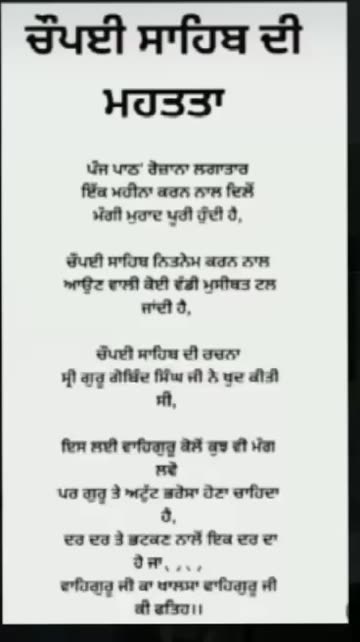 ਚੌਪਈ ਸਾਹਿਬ ਦੀ
ਮਹਤਤਾ
ਪੰਜ ਪਾਠ' ਰੋਜ਼ਾਨਾ ਲਗਾਤਾਰ
ਇੱਕ ਮਹੀਨਾ ਕਰਨ ਨਾਲ ਦਿਲੋਂ
ਮੰਗੀ ਮੁਰਾਦ ਪੂਰੀ ਹੁੰਦੀ ਹੈ,
ਚੌਪਈ ਸਾਹਿਬ ਨਿਤਨੇਮ ਕਰਨ ਨਾਲ
ਆਉਣ ਵਾਲੀ ਕੋਈ ਵੱਡੀ ਮੁਸੀਬਤ ਟਲ
ਜਾਂਦੀ ਹੈ,
ਚੌਪਈ ਸਾਹਿਬ ਦੀ ਰਚਨਾ
ਸ੍ਰੀ ਗੁਰੂ ਗੋਬਿੰਦ ਸਿੰਘ ਜੀ ਨੇ ਖੁਦ ਕੀਤੀ
ਸੀ,
ਇਸ ਲਈ ਵਾਹਿਗੁਰੂ ਕੋਲੋਂ ਕੁਝ ਵੀ ਮੰਗ
ਲਵੋ
ਪਰ ਗੁਰੂ ਤੇ ਅਟੁੱਟ ਭਰੋਸਾ ਹੋਣਾ ਚਾਹਿਦਾ
ਹੈ,
ਦਰ ਦਰ ਤੇ ਭਟਕਣ ਨਾਲੋਂ ਇਕ ਦਰ ਦਾ
ਹੋ ਜਾ、、、、
ਵਾਹਿਗੁਰੂ ਜੀ ਕਾ ਖਾਲਸਾ ਵਾਹਿਗੁਰੂ ਜੀ
ਕੀ ਫਤਿਹ।।